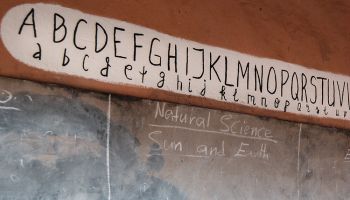 A B C D E F G H I J K L M N O P Q R S T U V
a b c d e f g h i j k l m n o p q r s t u v
Natural Science
Sun and Earth